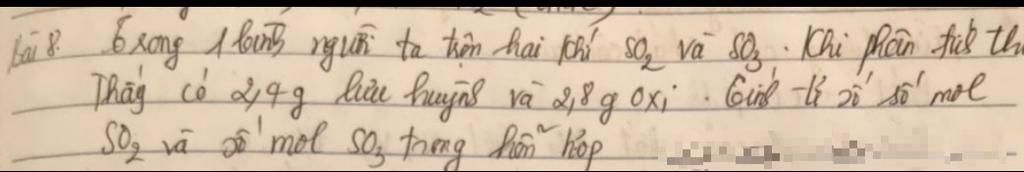 Bài 8. Trong 1 bình người ta trộn hai khí SO₂ và SO₃. Khi phân tích
Thấy có 2,4g lưu huỳnh và 2,8g oxi. Tính tỉ số số mol
SO₂ và số mol SO₃ trong hỗn hợp